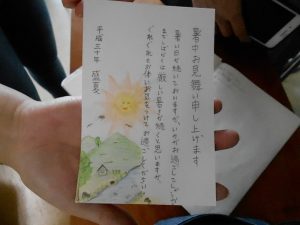 暑中お見舞い申し上げます
暑い日が続いておりますが、いかがお過ごしでしょうか
まだしばらくは厳しい暑さが続くと思いますが、
くれぐれもお体にお気をつけてお過ごしください
平成三十年 盛夏